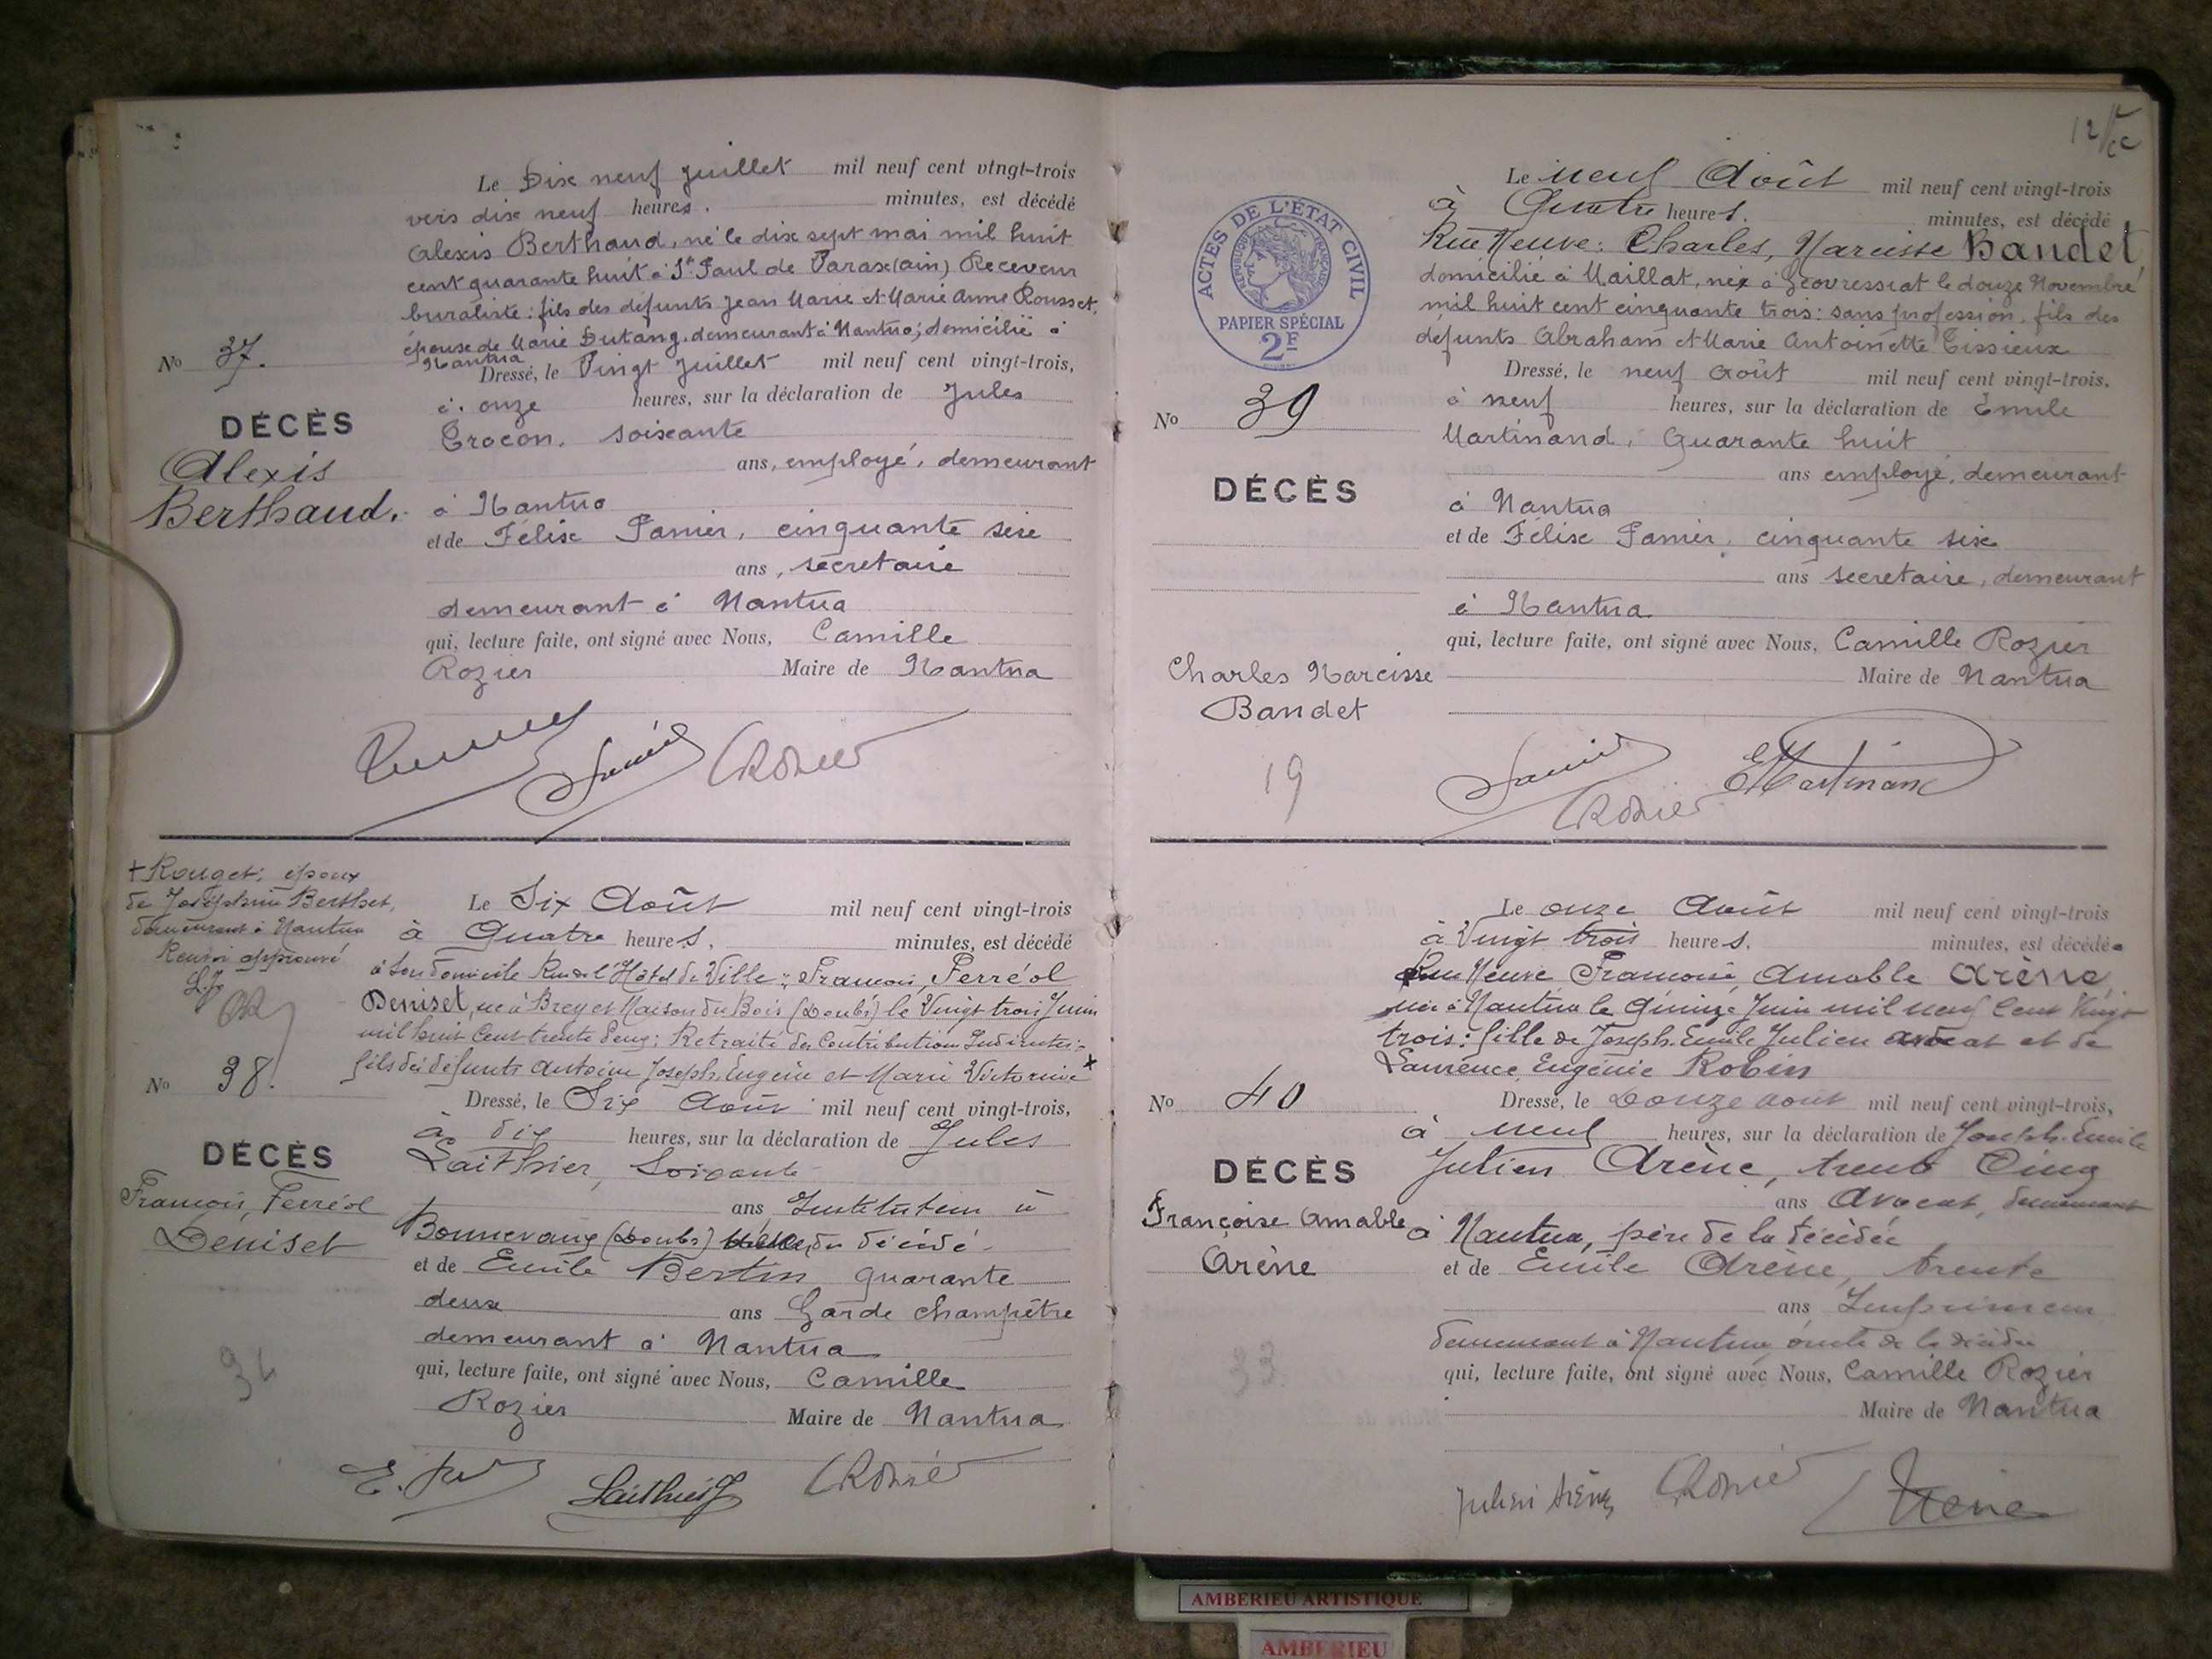 Le Dix neuf juillet mil neuf cent vingt-trois
vers dix neuf heures. minutes, est décédé
Alexis Berthaud, né le dix sept mai mil huit
cent quarante huit à St Paul de Varax (ain) Receveur
buraliste: fils des défunts Jean Marie et Marie Anne Rousset,
épouse de Marie Dutang, demeurant à Nantua; domicilié à
Nantua
Dressé, le Vingt juillet mil neuf cent vingt-trois,
No 37.
à onze heures, sur la déclaration de Jules
DÉCÈS
Crocon, soixante
Alexis
ans, employé, demeurant
Berthaud.
à Nantua
et de Félix Panier, cinquante six
ans, secretaire
demeurant à Nantua
qui, lecture faite, ont signé avec Nous, Camille
Rozier Maire de Nantua
+ Rouget; époux
de Joséphine Berthet,
demeurant à Nantua
Renvoi approuvé
L.J.
CR
Le Six Août mil neuf cent vingt-trois
à Quatre heures, minutes, est décédé
à son domicile Rue de l'Hôtel de Ville: François, Ferréol
Deniset, né à Brey et Maison du Bois (Doubs) le Vingt trois Juin
mil huit cent trente deux; Retraité des Contributions Indirectes:
fils des défunts Antoine Joseph Eugène et Marie Victorine +
No 38.
Dressé, le Six Août mil neuf cent vingt-trois,
à dix heures, sur la déclaration de Jules
DÉCÈS
Laithier, Soixante
François, Ferréol
ans Instituteur à
Deniset
Bonnevaux (Doubs) du décédé
et de Emile Bertin quarante
deux ans Garde champêtre
demeurant à Nantua
qui, lecture faite, ont signé avec Nous, Camille
Rozier Maire de Nantua
Laithier J
CRozier
12
Le neuf Août mil neuf cent vingt-trois
à Quatre heures. minutes, est décédé
Rue Neuve: Charles, Narcisse Bandet,
domicilié à Maillat, né à Géovressiat le douze Novembre
mil huit cent cinquante trois: sans profession, fils des
défunts Abraham et Marie Antoinette Tissieux
ACTES DE L'ÉTAT CIVIL
RÉPUBLIQUE FRANÇAISE
PAPIER SPÉCIAL
2F
Dressé, le neuf Août mil neuf cent vingt-trois.
No 39
à neuf heures, sur la déclaration de Emile
Martinand, Quarante huit
DÉCÈS
ans employé, demeurant
à Nantua
et de Félix Panier, cinquante six
ans secretaire, demeurant
à Nantua
qui, lecture faite, ont signé avec Nous, Camille Rozier
Charles Narcisse
Maire de Nantua
Bandet
19
CRozier
EMartinand
Le onze Août mil neuf cent vingt-trois
à Vingt trois heures. minutes, est décédée
Rue Neuve Françoise, Amable Arène,
née à Nantua le Quinze Juin mil neuf cent Vingt
trois: fille de Joseph-Emile Julien avocat et de
Laurence, Eugénie Robin
No 40
Dressé, le Douze Août mil neuf cent vingt-trois,
à neuf heures, sur la déclaration de Joseph-Emile
DÉCÈS
Julien Arène, trente Cinq
ans Avocat, demeurant
Françoise Amable
à Nantua, père de la décédée
Arène
et de Emile Arène, trente
ans Imprimeur
33
demeurant à Nantua, oncle de la décédée
qui, lecture faite, ont signé avec Nous, Camille Rozier
Maire de Nantua
Julien Arène
CRozier
Arène
AMBERIEU ARTISTIQUE
AMBERIEU